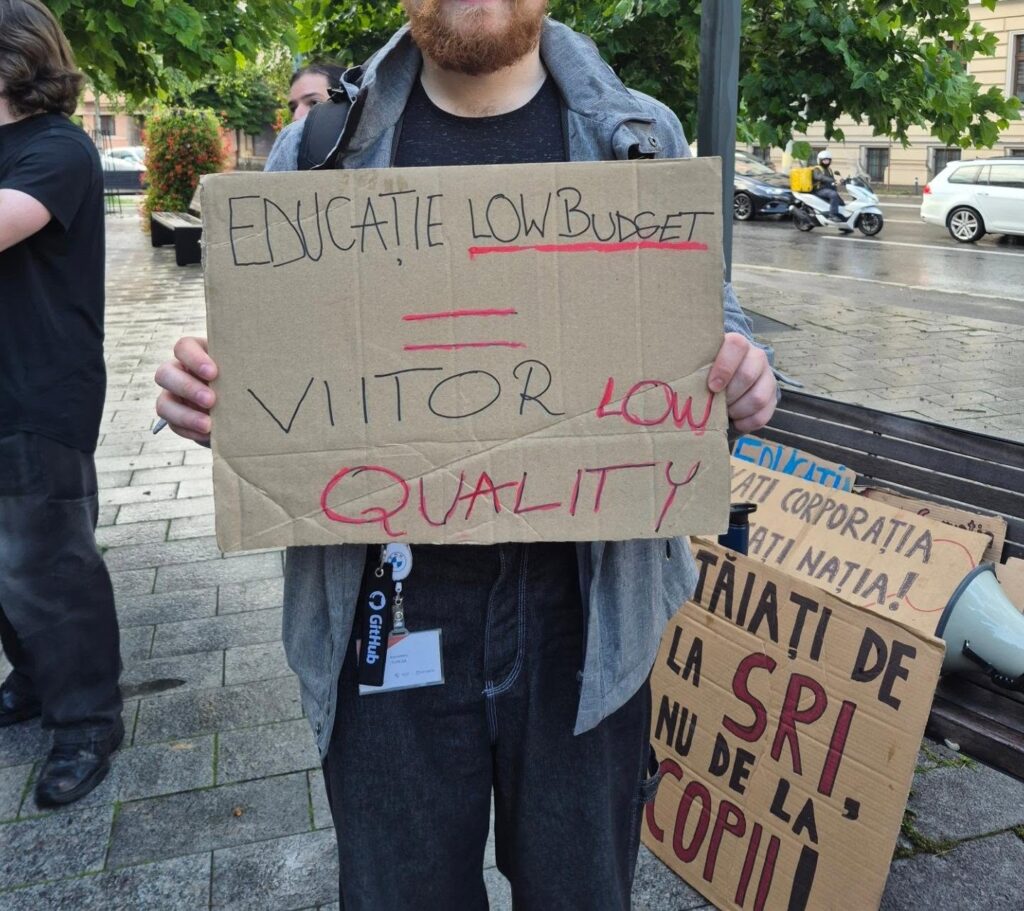 EDUCAȚIE LOW BUDGET
=
VIITOR LOW
QUALITY
GitHub
EDUCAȚI
CORPORAȚIA
NAȚIA!
TĂIAȚI DE
LA SRI,
NU DE LA
COPII!